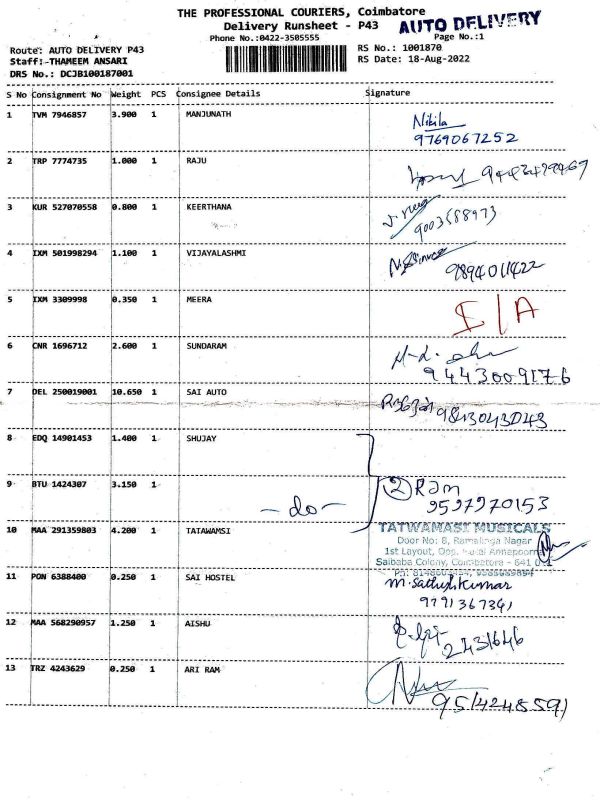 THE PROFESSIONAL COURIERS, Coimbatore
Delivery Runsheet - P43
AUTO DELIVERY
Phone No.:0422-3505555
Page No.:1
Route: AUTO DELIVERY P43
RS No.: 1001870
Staff: THAMEEM ANSARI
RS Date: 18-Aug-2022
DRS No.: DCJB100187001
S No Consignment No Weight PCS Consignee Details Signature
1 TVM 7946857 3.900 1 MANJUNATH Nikila
9769067252
2 TRP 7774735 1.000 1 RAJU
3 KUR 527070558 0.800 1 KEERTHANA
9003588973
4 IXM 501998294 1.100 1 VIJAYALASHMI
9894011422
5 IXM 3309998 0.350 1 MEERA I/A
6 CNR 1696712 2.600 1 SUNDARAM
9443009176
7 DEL 250019001 10.650 1 SAI AUTO 9843043043
8 EDQ 14901453 1.400 1 SHUJAY
9 BTU 1424307 3.150 1 -do- 2 Ram
9597970153
10 MAA 291359803 4.200 1 TATAWAMSI TATWAMASI MUSICALS
Door No: 8, Ramalinga Nagar
1st Layout, Opp. Hotel Annapoorna
Saibaba Colony, Coimbatore - 641 011
11 PON 6388400 0.250 1 SAI HOSTEL M. Sathish Kumar
9791367341
12 MAA 568290957 1.250 1 AISHU
2431646
13 TRZ 4243629 0.250 1 ARI RAM
9514248591